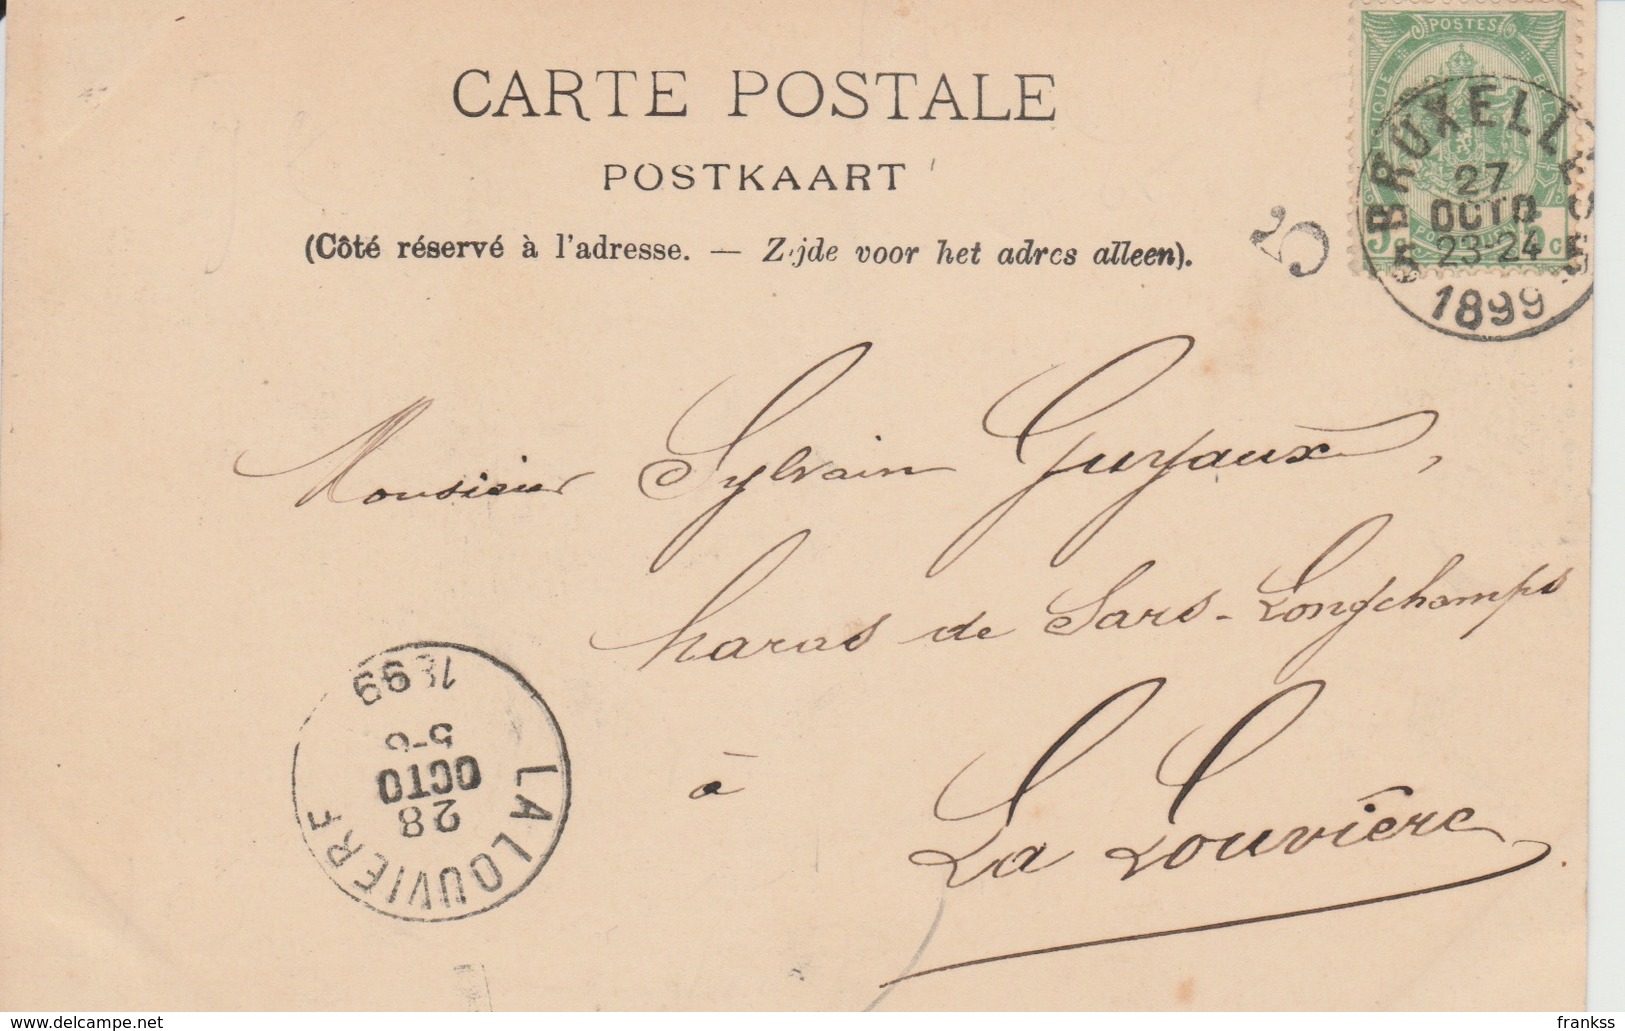 CARTE POSTALE
POSTKAART
(Côté réservé à l'adresse. — Zijde voor het adres alleen).
POSTES
BELGIQUE
5 C
BRUXELLES 5
27
OCTO
23-24
1899
5
Monsieur Sylvain Guyaux,
haras de Sars-Longchamps
à
La Louvière
LA LOUVIERE
28
OCTO
1899
delcampe.net
frankss